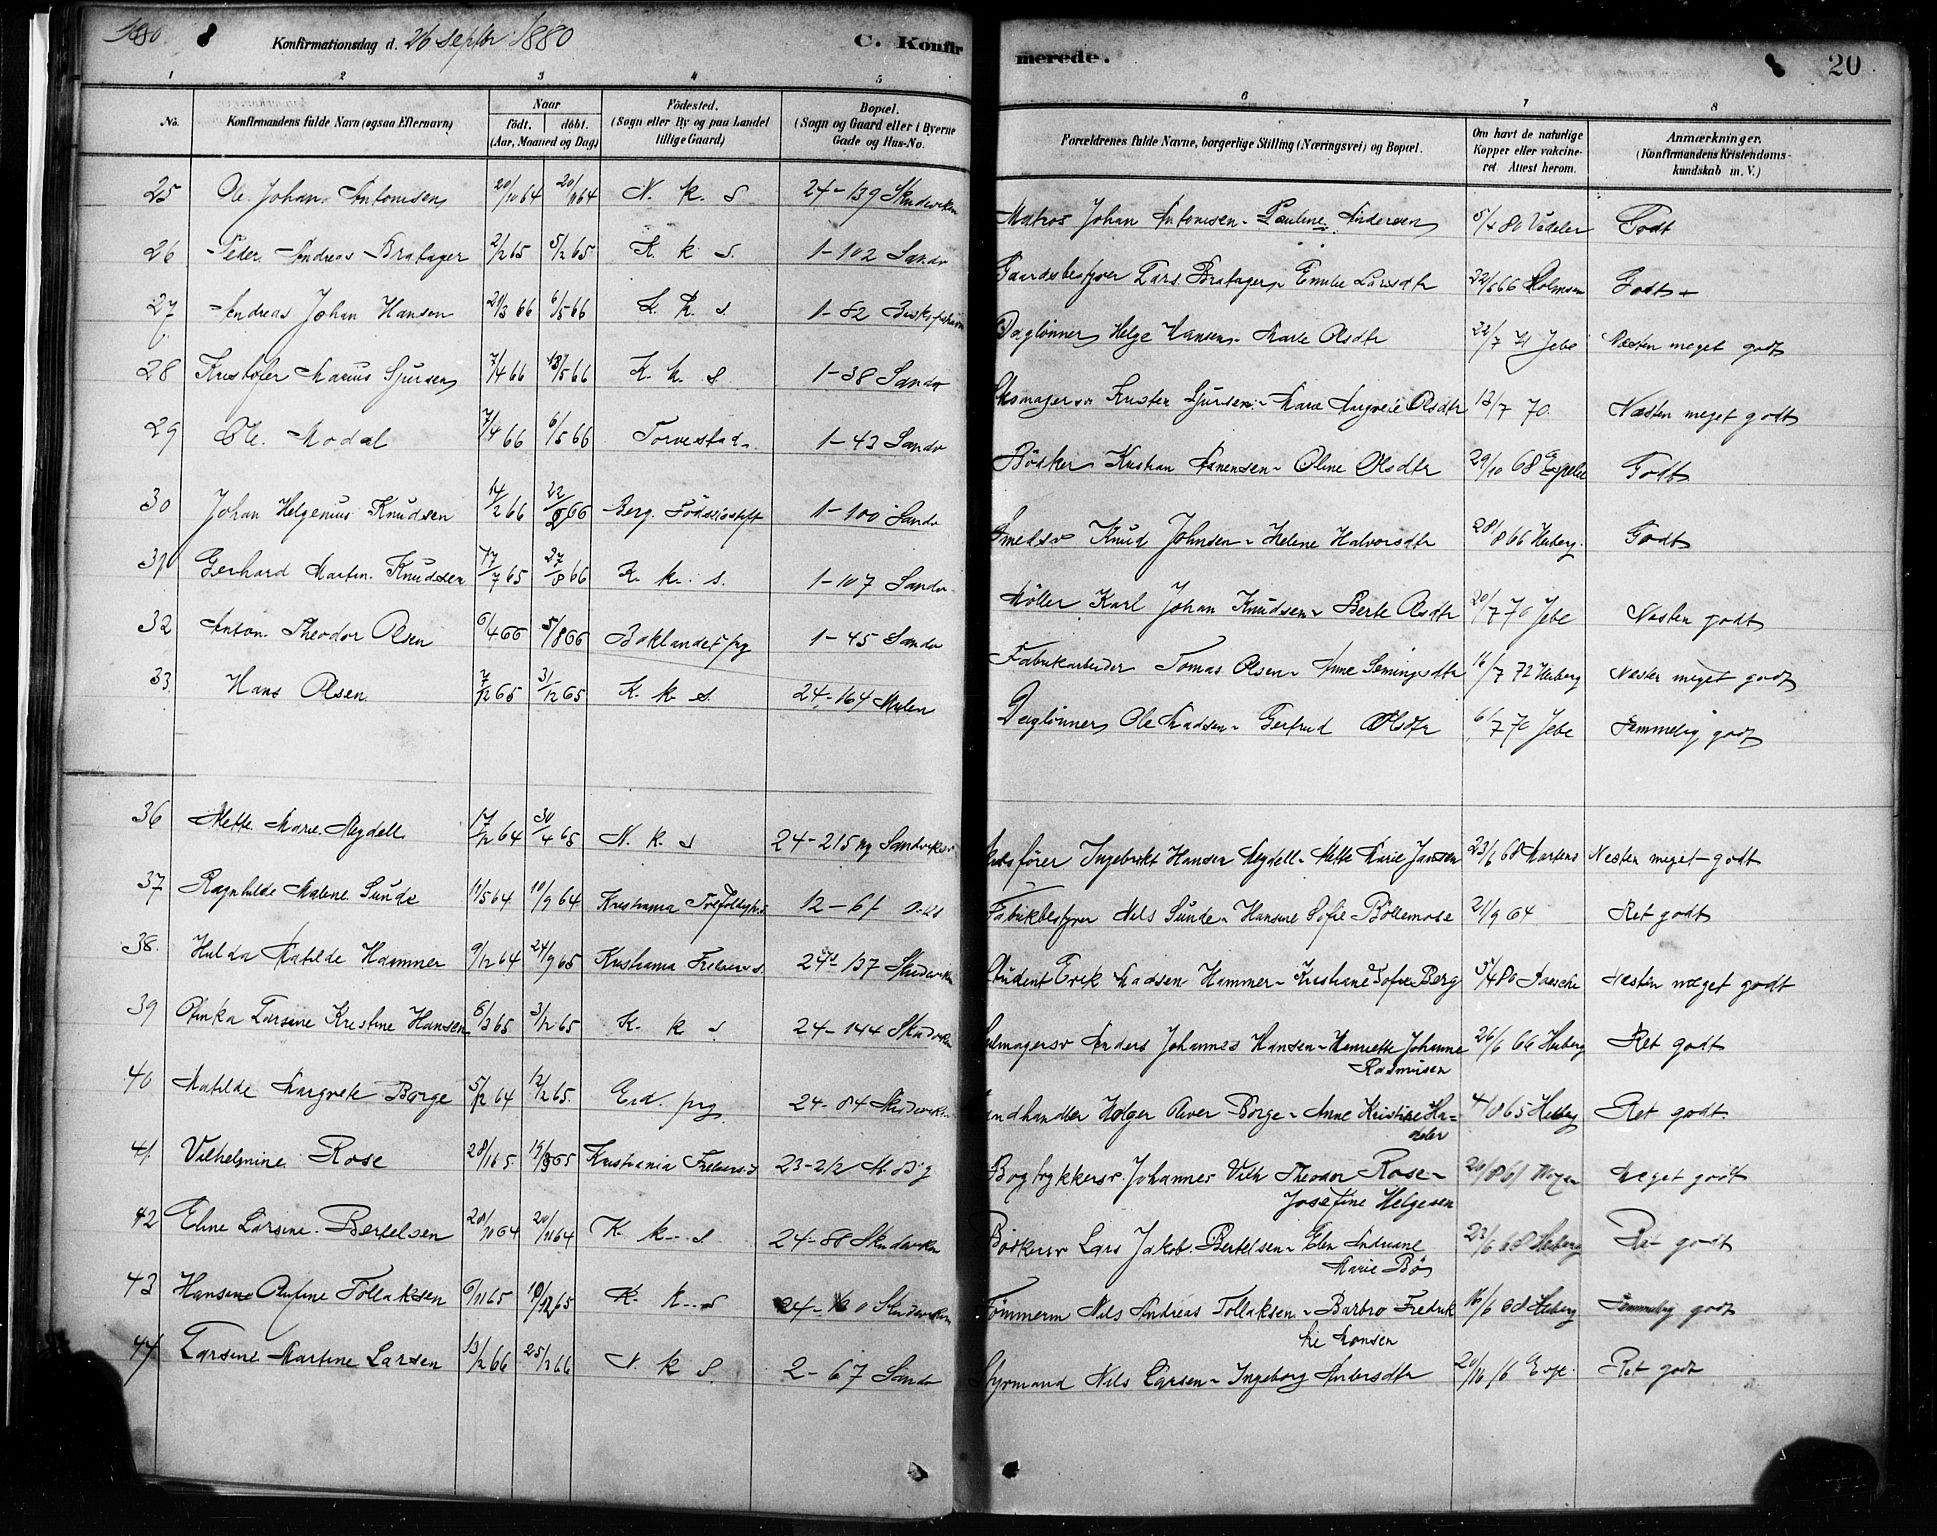 1880 8 Konfirmationsdag d. 26 Septbr 1880 C. Konfirmerede. 8 20
1 2 3 4 5 6 7 8
No. Konfirmandens fulde Navn (ogsaa Efternavn) Naar født. døbt. (Aar, Maaned og Dag) Fødested. (Sogn eller By og paa Landet tillige Gaard) Bopæl. (Sogn og Gaard eller i Byerne Gade og Hus-No. Forældrenes fulde Navne, borgerlige Stilling (Næringsvei) og Bopæl. Om havt de naturlige Kopper eller vakcineret Attest herom. Anmærkninger. (Konfirmandens Kristendomskundskab m. V.)
25 Ole Johan Antonisen 20/10 64 20/11 64 N. k. S 24-139 Skudeviken Matros Johan Antonisen - Pauline Andersen 5/4 80 Godt
26 Peder Andreas Bratager 2/2 65 5/12 65 K. k. S. 1-102 Sandv Gaardsbestyrer Lars Bratager - Emilie Larsdtr 22/6 66 Holmsen Godt
27 Andreas Johan Hansen 29/3 66 6/5 66 K. k. s 1-82 Daglønner Helge Hansen - Marte Olsdtr 22/7 71 Jebe Næsten meget godt
28 Kristofer Marius Sjursen 7/4 66 13/5 66 K. k. s 1-38 Sandv Skomagersv Kristen Sjursen - Marie Margrete Olsdtr 13/7 70 Næsten meget godt
29 Ole Modal 7/4 66 6/5 66 Torvestad 1-43 Sandv Bødker Kristian - Oline Olsdtr 29/10 68 Godt
30 Johan Helgenius Knudsen 14/2 66 22/ 66 Berg. Fødselsstift 1-100 Sandv Smedsv Knud Johnsen - Helene Halvorsdtr 28/8 66 Heiberg Godt
31 Gerhard Martin Knudsen 17/7 65 27/8 66 K. k. s. 1-107 Sandv Møller Karl Johan Knudsen - Berte Olsdtr 20/7 70 Jebe Næsten godt
32 Anton Theodor Olsen 6/4 66 5/8 66 Baklandet prg 1-45 Sandv Fabrikarbeider Tomas Olsen - Anne Semingsdtr 16/7 72 Heiberg Næsten meget godt
33 Hans Olsen 7/12 65 31/12 65 K. k. s 24-164 Mulen Daglønner Ole Madsen - Gertrud Olsdtr 6/7 70 Jebe Temmelig godt
36 Mette Marie Meydell 17/12 64 30/4 65 N. k. s 24-215 ny Sandviksv Ingebrikt Hansen Meydell - Mette Marie Jansen 23/6 68 Martens Næsten meget godt
37 Ragnhilde Malene Sunde 11/5 64 10/9 64 Kristiania 12-61 Fabrikbestyrer Nils Sunde - Hansine Sofie Bøllemose 21/9 64 Ret godt
38. Hulda Matilde Hammer 9/12 64 24/9 65 Kristiania 24-137 Skudeviken Student Erik Madsen Hammer - Kristiane Sofie Berg 3/4 80 Næsten meget godt
39 Olinka Larsine Kristine Hansen 6/3 65 3/12 65 K. k s 24-144 Skudeviken Anders Johannes Hansen - Henriette Johanne Rasmusen 26/6 66 Heiberg Ret godt
40 Matilde Margrete Børge 5/12 64 12/12 65 Eid. prg. 24-84 Skudeviken Landhandler Holger Oliver Børge - Anne Kristine Ha- 4/8 65 Heiberg Ret godt.
41. Vilhelmine Rose 28/1 65. 19/3 65 Kristiania 23-2/2 Bogtrykkersv. Johannes Vilh Theodor Rose - Josefine Helgesen Meget godt
42 Eline Larsine Bertelsen 28/10 64 20/11 64 K. k. s 24-88 Skudeviken Bødkersv Lars Jakob Bertelsen - Elen Andreane Marie Bø 23/6 68 Heiberg Ret godt
43 Hansine Olufine Tollaksen 6/11 65 10/12 65 K. k. S Skudeviken Tømmerm Nils Andreas Tollaksen - Barbro Fredrikke Monsen 16/6 68 Heiberg Temmelig godt
44 Larsine Martine Larsen 13/2 66 25/3 66 N k S. 2-67 Sandv Styrmand Nils Larsen - Ingeborg Andersdtr Ret godt